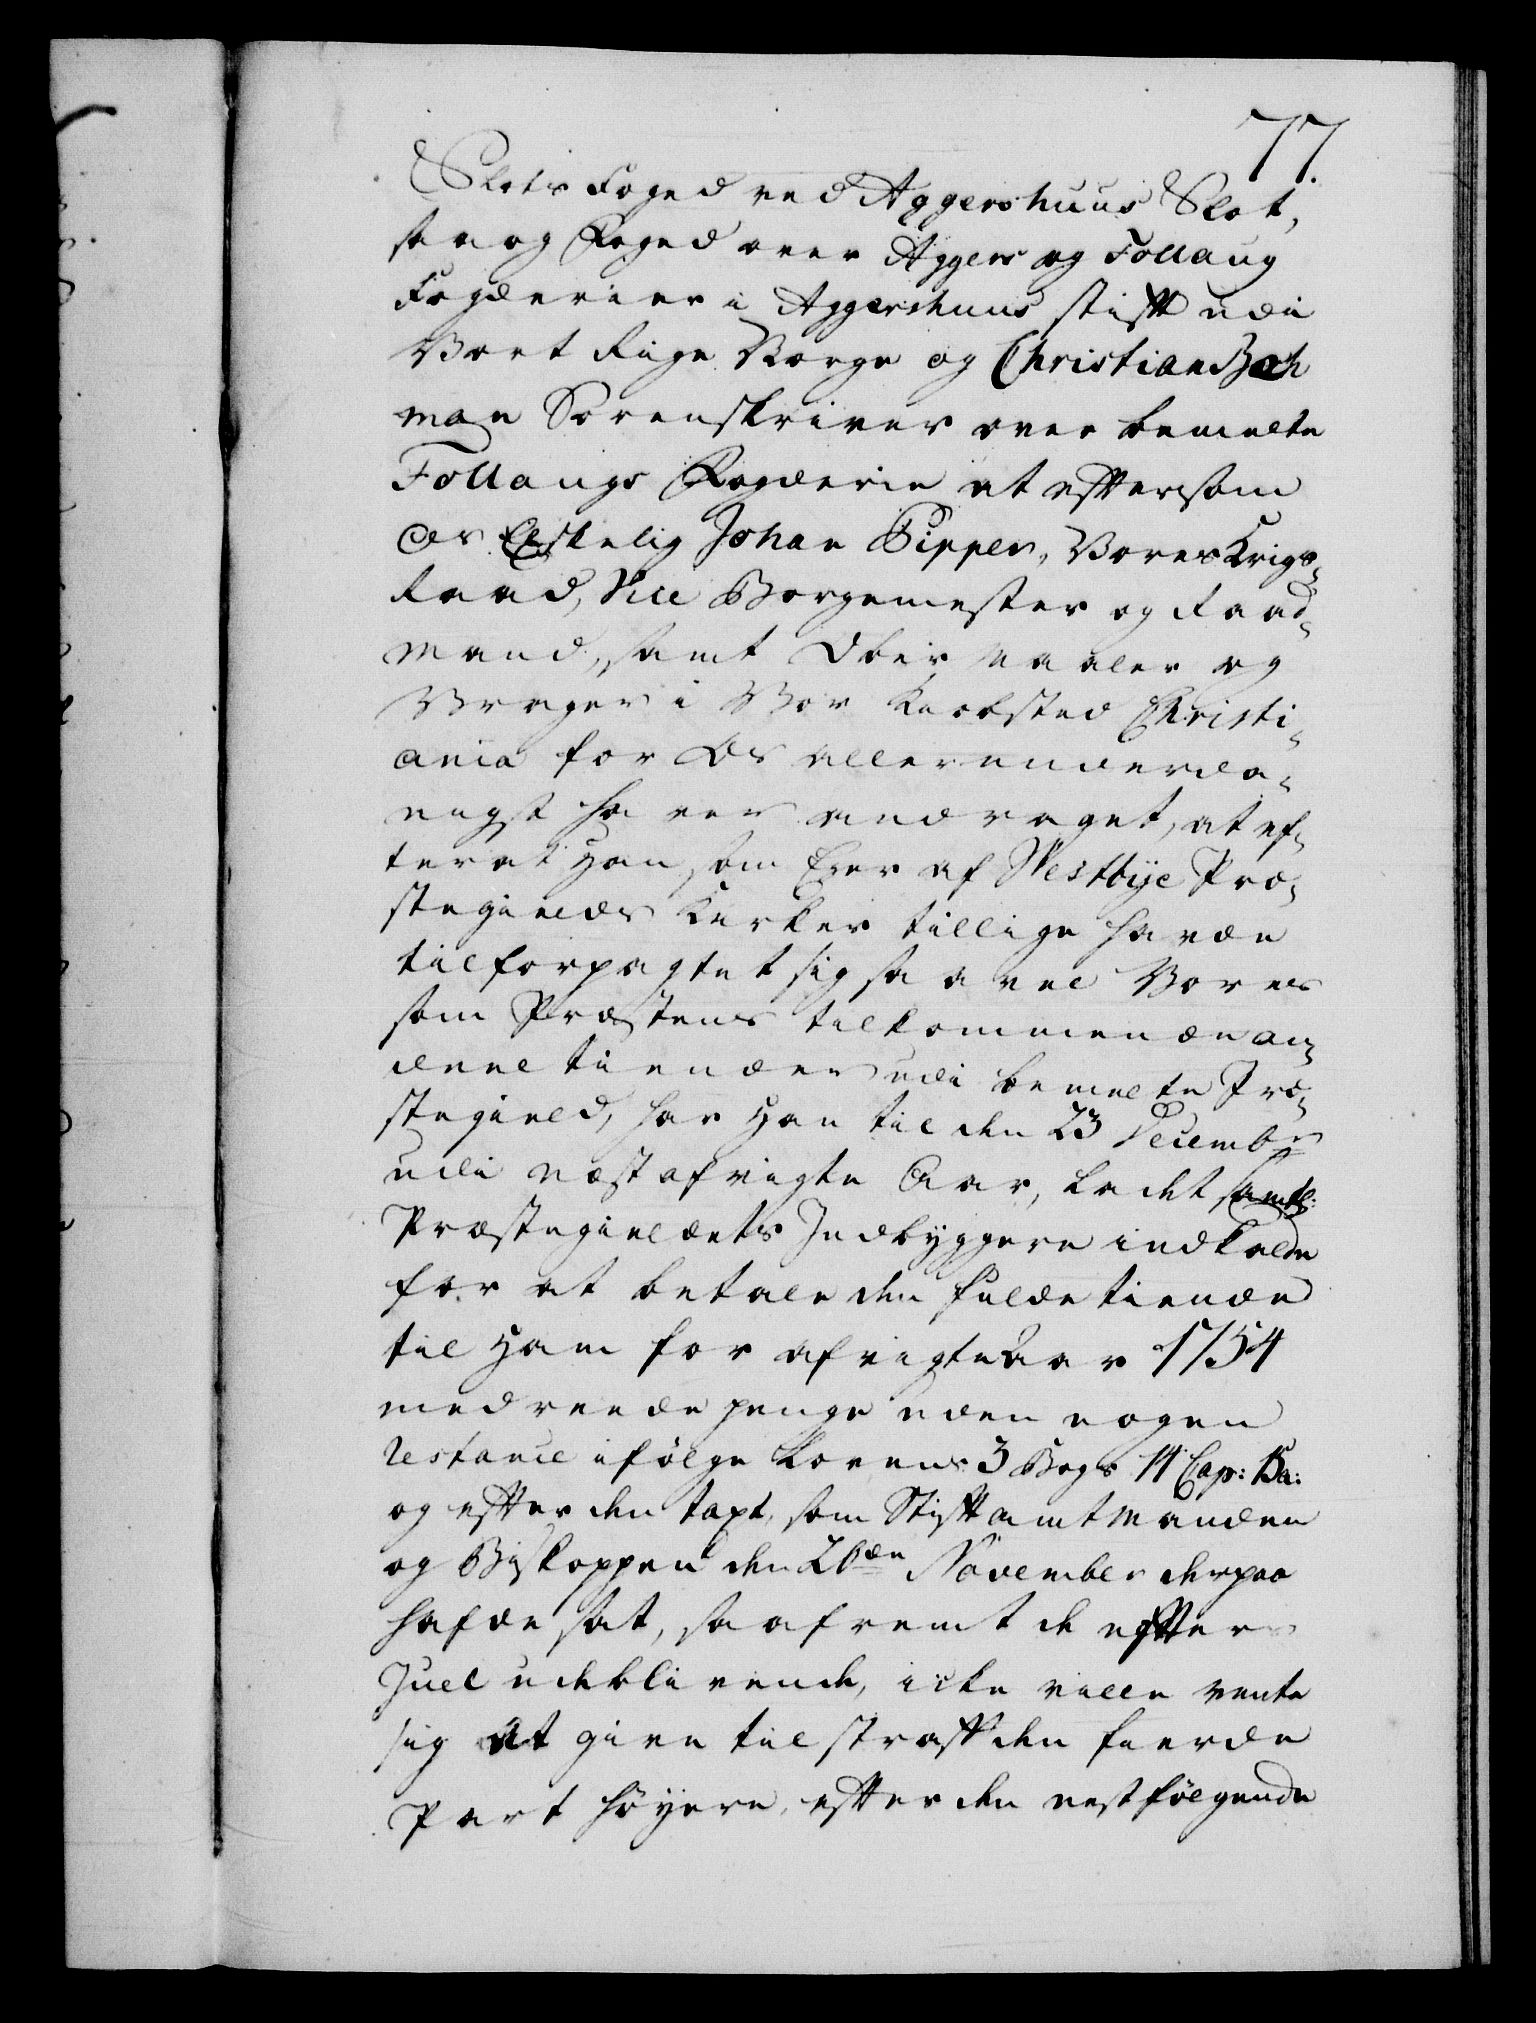 77.
Slots Foged ved Aggershuus Slot,
saa og Foged over Aggers og Follaug
Fogderier i Aggershuus stift udi
Vort Rige Norge og Christian Bach
man Sorenskriver over bemelte
Follaugs Fogderie at eftersom
Os Elskelig Johan Pipper, Vores Krigs-
Raad, Vice Borgemester og Raad-
mand, samt Ober Maaler og
Vrager i Vor Kiøbsted Christi-
ania for Os allerunderda-
nigst haver andraget, at ef-
ter at Han som Eyer af Westbye Præ-
stegields Kirker tillige havde
tilforpagtet sig saavel Vores
som Præstens tilkommende an-
deel tiender udi bemelte Præ-
stegield, har Han til den 23 Decembr
udi næst afvigte Aar, ladet samtl:
Præstegieldets Indbyggere indkalde
for at betale den fulde tiende
til Ham for afvigte Aar 1754
med reede penge uden nogen
restance ifølge Lovens 3 Bogs 14 Cap: 15 a:
og efter den taxt, som Stiftamtmanden
og Biskoppen den 26de November derpaa
hafde sat, saafremt de efter
Juel udeblivende, icke ville vente
sig at give til straff den fierde
Part høyere, efter den nestfølgende